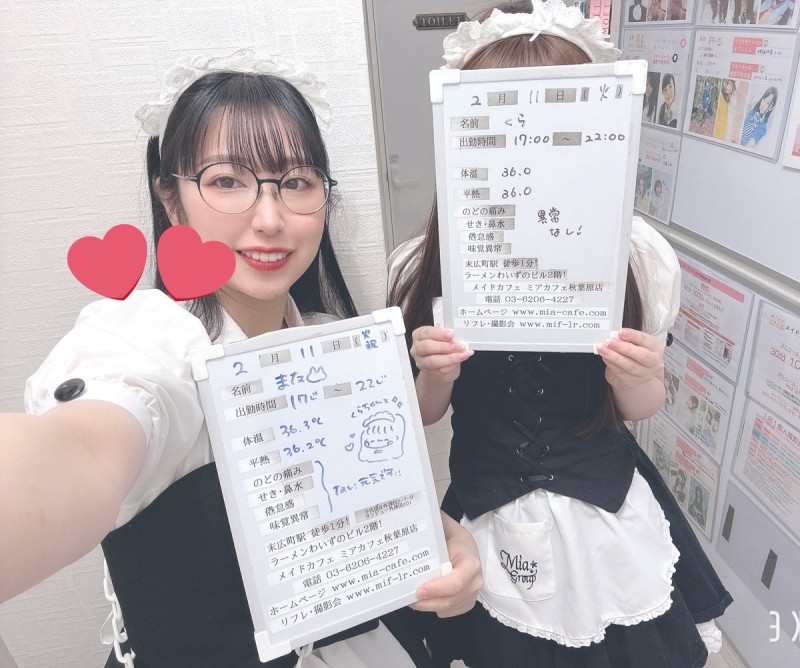 TOILET
2月11日(火)
名前 くら
出勤時間 17:00 ~ 22:00
体温 36.0
平熱 36.0
のどの痛み
せき・鼻水
倦怠感
味覚異常
異常
なし!
末広町駅 徒歩1分!
ラーメンわいずのビル2階!
メイドカフェ ミアカフェ秋葉原店
電話 03-6206-4227
ホームページ www.mia-cafe.com
リフレ・撮影会 www.mif-lr.com
2月11日(火祝)
名前 また
出勤時間 17じ ~ 22じ
体温 36.3℃
平熱 36.2℃
のどの痛み
せき・鼻水
倦怠感
味覚異常
なし!元気です!!
くらちゃんと
末広町駅 徒歩1分!
ラーメンわいずのビル2階!
メイドカフェ ミアカフェ秋葉原店
電話 03-6206-4227
ホームページ www.mia-cafe.com
リフレ・撮影会 www.mif-lr.com
Mia
Group